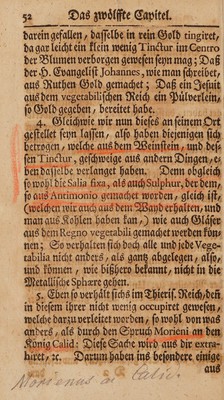 52 Das zwölffte Capitel.
darein gefallen, dasselbe in rein Gold tingiret,
da gar leicht ein klein wenig Tinctur im Centro
der Blumen verborgen gewesen seyn mag; Daß
der H. Evangelist Johannes, wie man schreibet,
aus Ruthen Gold gemachet; Daß ein Jesuit
aus dem vegetabilischen Reich ein Pülverlein,
so Gold gegeben, bereitet habe.
4. Gleichwie wir nun dieses an seinem Ort
gestellet seyn lassen, also haben diejenigen sich
betrogen, welche aus dem Weinstein, und des-
sen Tinctur, geschweige aus andern Dingen, e-
ben dasselbe verlanget haben. Denn obgleich
so wohl die Salia fixa, als auch Sulphur, der dem,
so aus Antimonio gemachet worden, gleich ist,
(welchen wir auch aus dem Wanß erhalten, und
man aus Kohlen haben kan,) wie auch Gläser
aus dem Regno vegetabili gemachet werden kön-
nen; So verhalten sich doch alle und jede Vege-
tabilia nicht anders, als gantz abgelegen, also,
und können, wie bißhero bekannt, nicht in die
Metallische Sphære gehen.
5. Eben so verhält sichs im Thieris. Reich, deñ
in diesem ihrer nicht wenig occupiret gewesen,
welche darzu verleitet worden, so wohl von was
anders, als durch den Spruch Morieni an den
König Calid: Diese Sache wird aus dir extra-
hiret, ꝛc. Darum haben ins besondere einige
aus
Morienus an Calid.